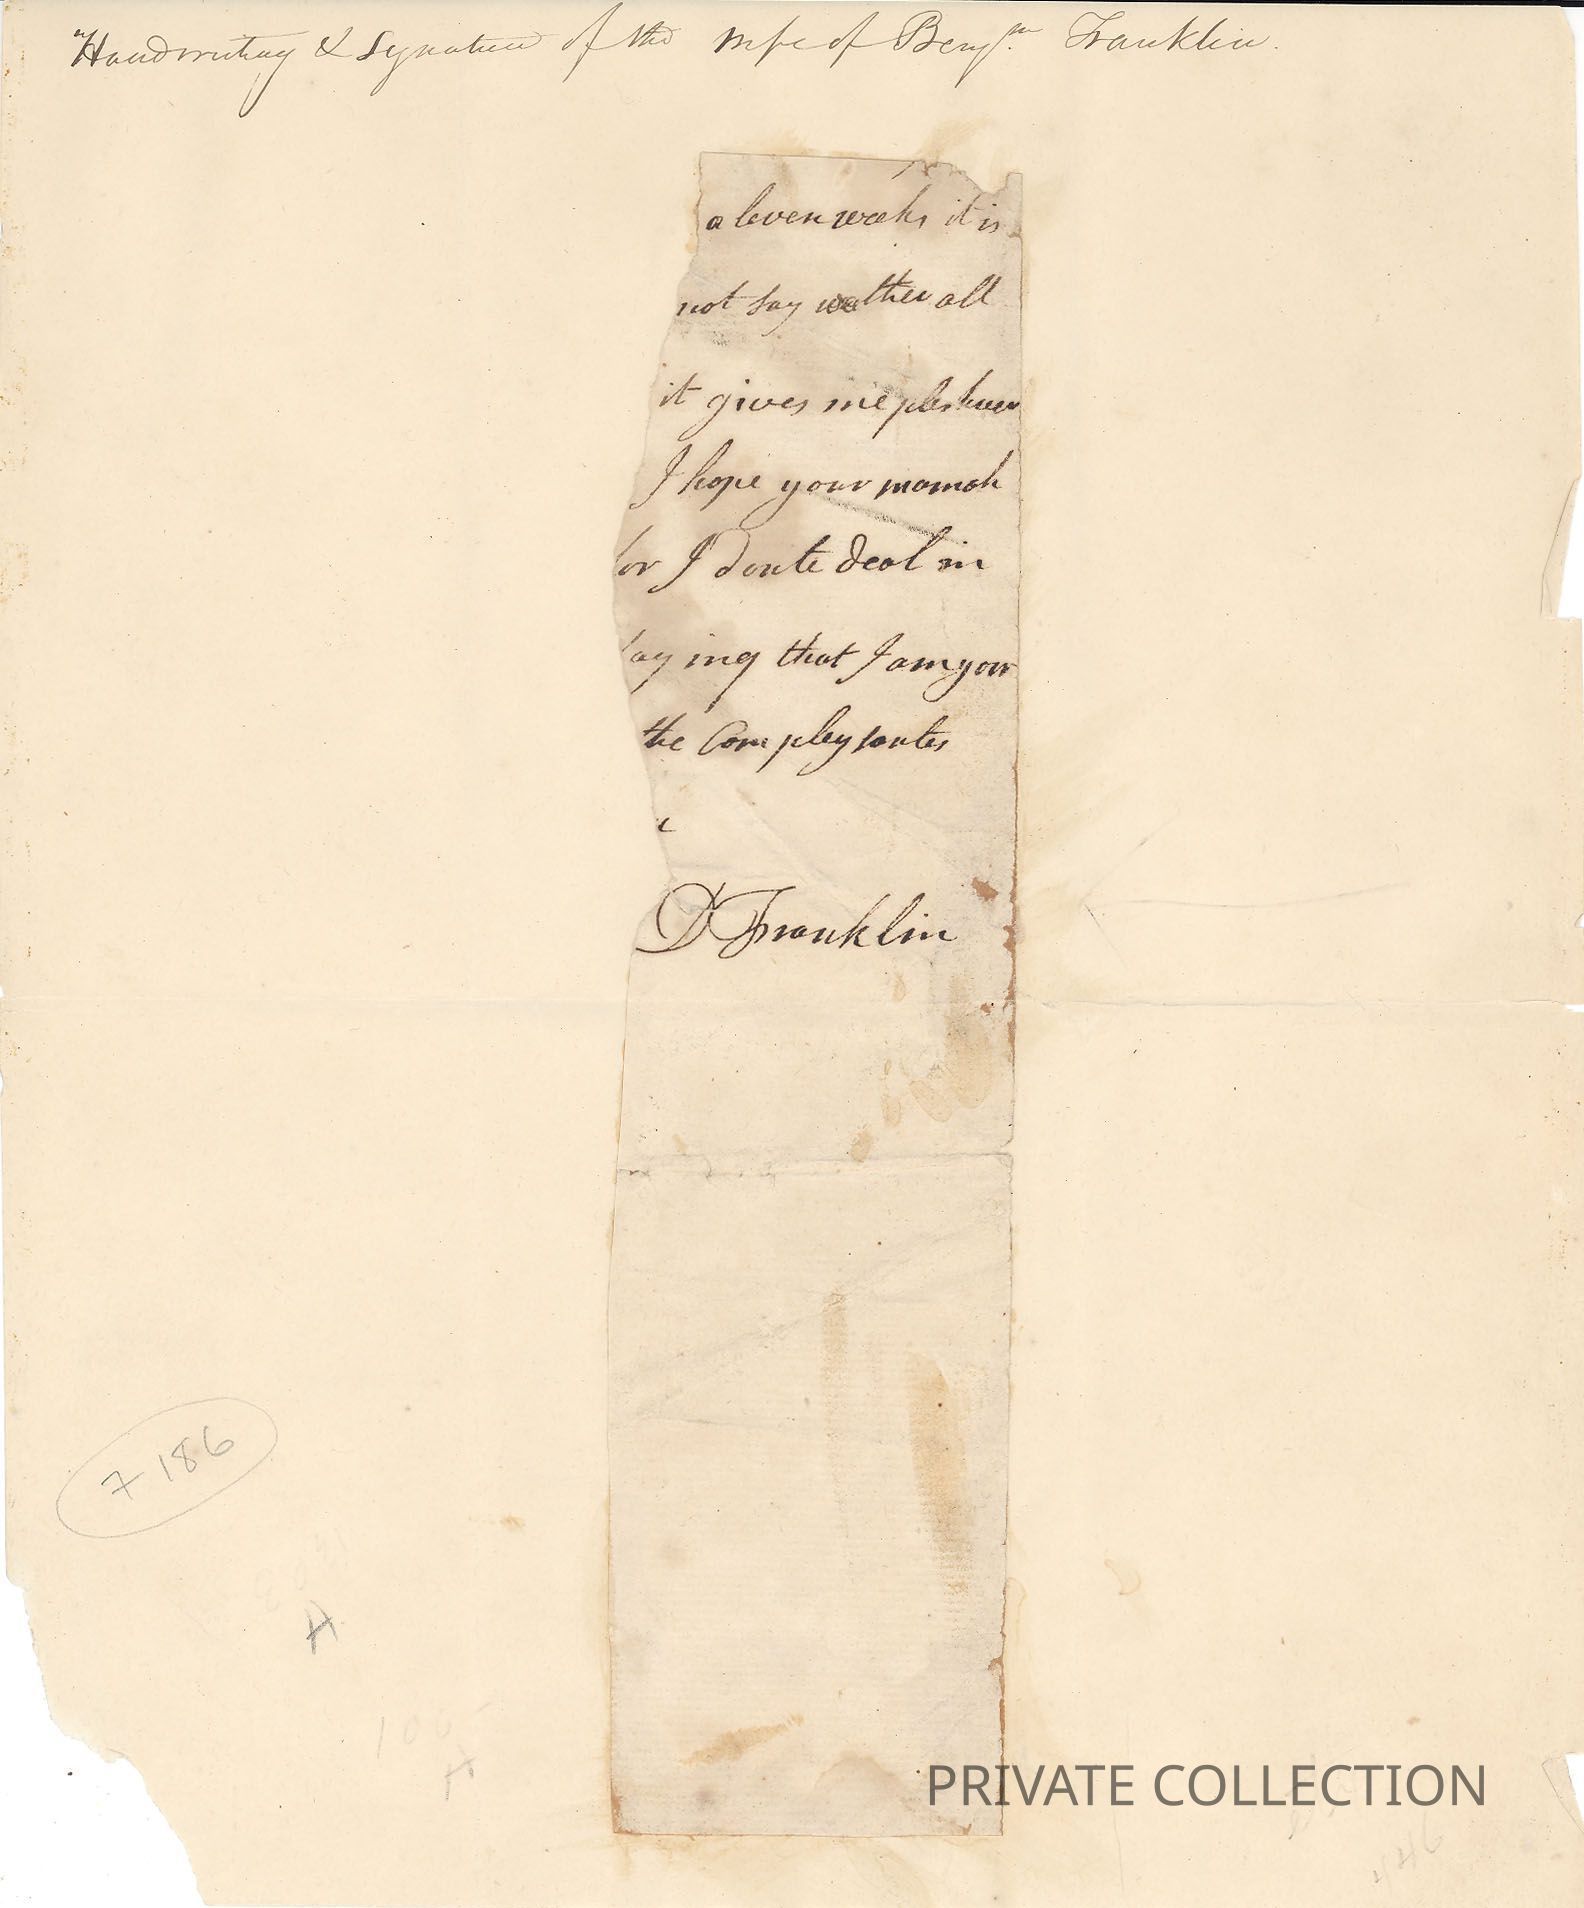 "Handwriting & Signature of the wife of Benjn. Franklin.
aleven weeks it is
not say wether all
it gives me pleshuer
I hope your mamah
for I donte deal in
saying that I am your
the Compleysantes
D Franklin
7186
H
100-
H
PRIVATE COLLECTION